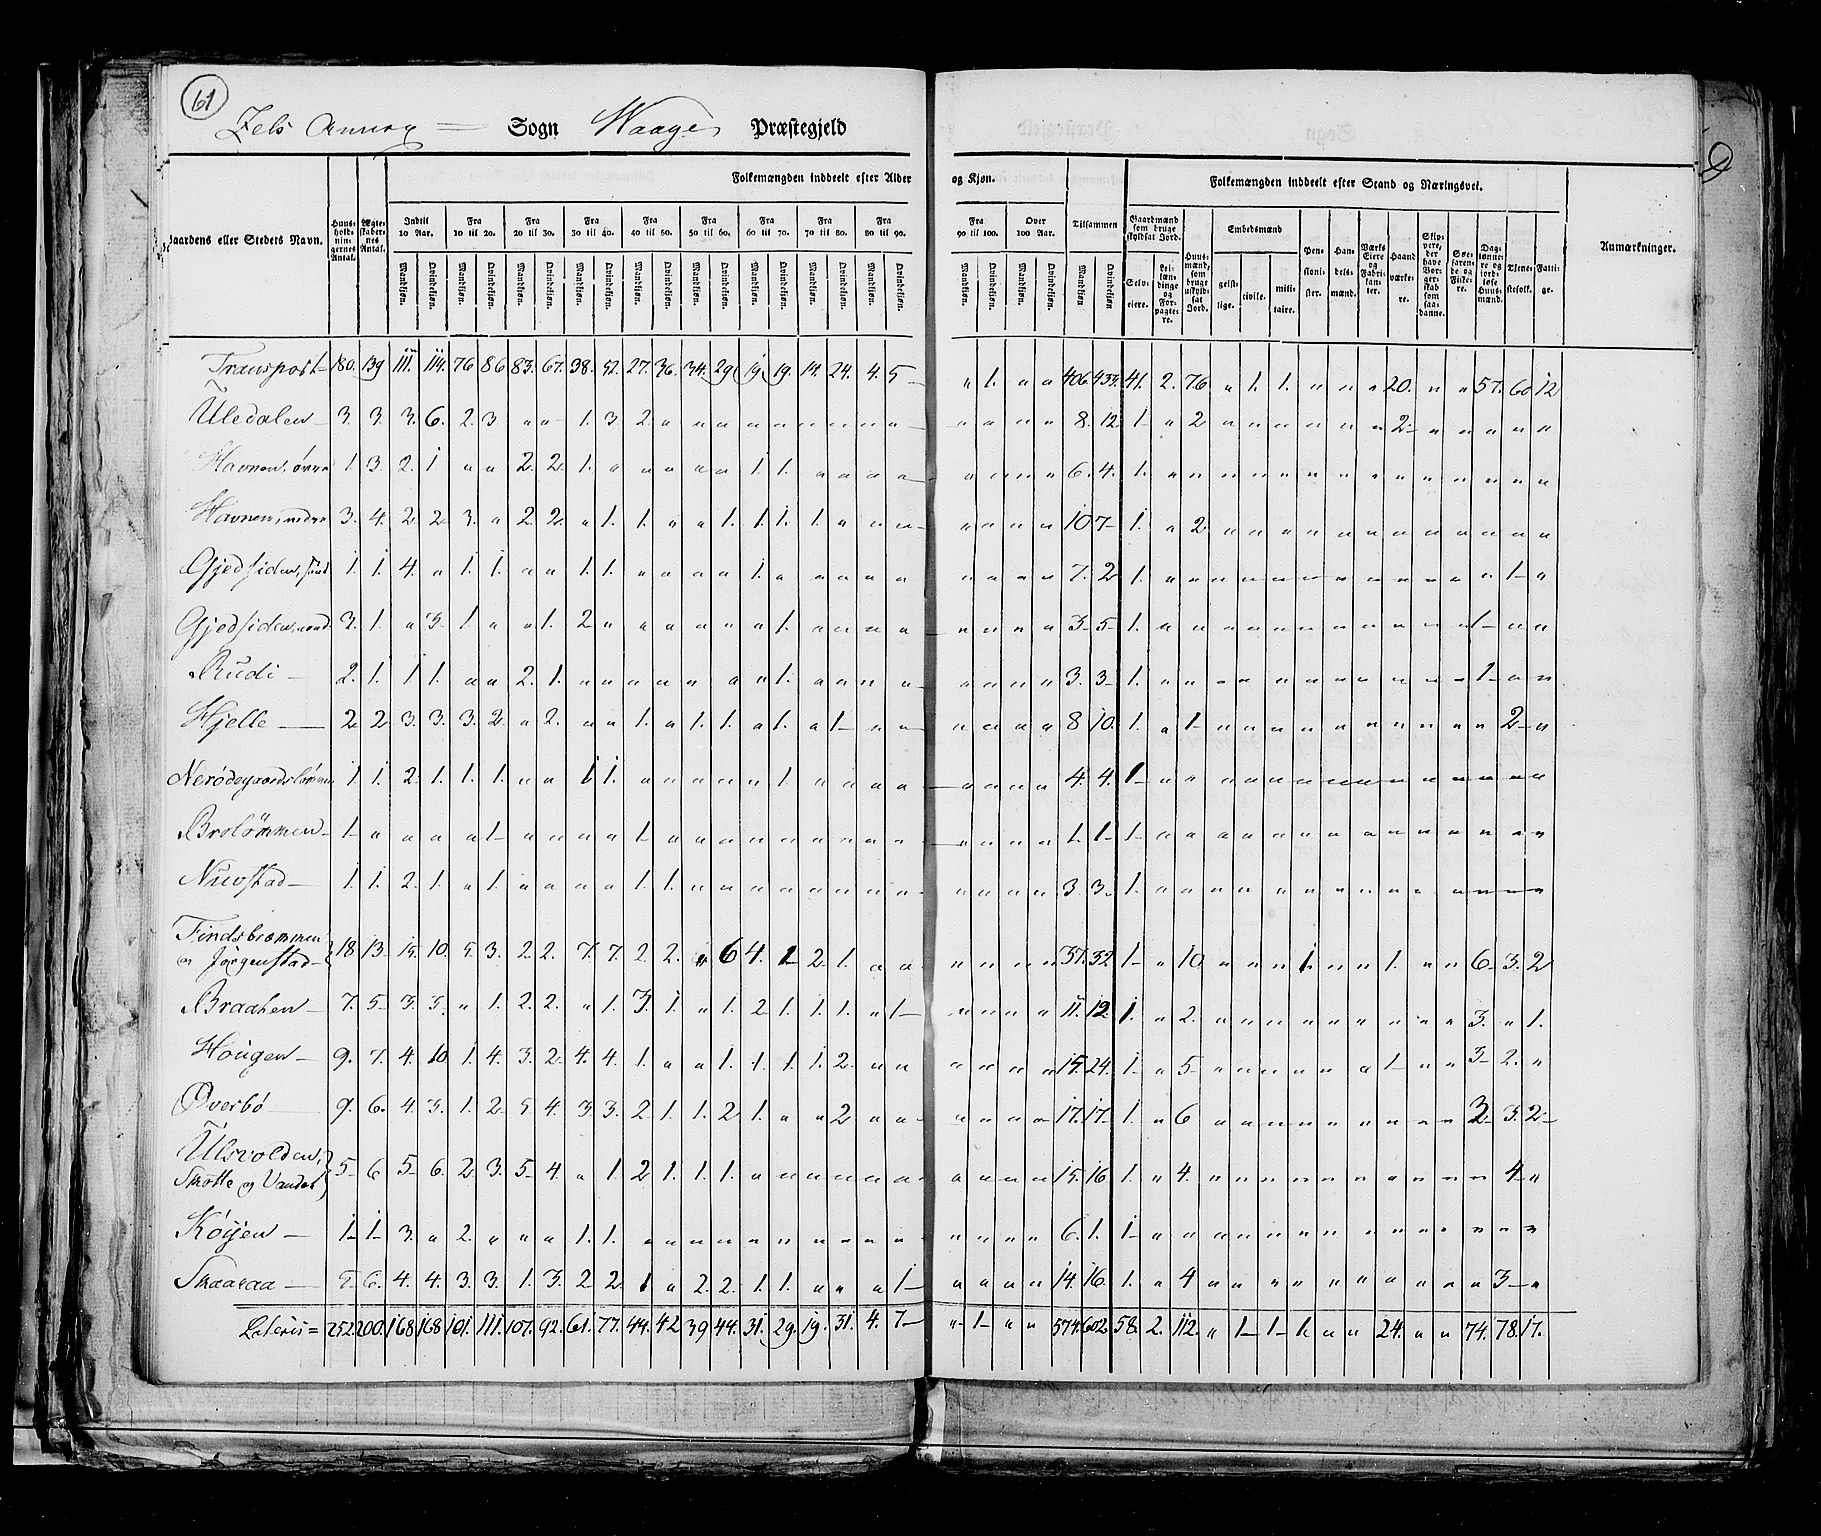 61
Sels Annex — Sogn Waage Præstegjeld
Folkemængden inddeelt efter Alder og Kjøn.
Folkemængden inddeelt efter Stand og Næringsvei.
Gaardens eller Stedets Navn. Huus-holdningernes Antal. Ægteskabernes Antal. Indtil 10 Aar. Fra 10 til 20. Fra 20 til 30. Fra 30 til 40. Fra 40 til 50. Fra 50 til 60. Fra 60 til 70. Fra 70 til 80. Fra 80 til 90. Fra 90 til 100. Over 100 Aar. Tilsammen
Gaardmænd som bruge skyldsat Jord. Selveiere. Leilændinge og Forpagtere. Huusmænd, som bruge uskyldsat Jord. Embedsmænd geistlige. civile. militaire. Pensionister. Handelsmænd. Værks Eiere og Fabrikanter. Haandværkere. Skippere, der have Borgerskab som saadanne. Søefarende og Fiskere. Daglønnere og jordeløse Huusmænd. Tjenestefolk. Fattige. Anmærkninger.
Mandkjøn. Qvindekjøn. Mandkjøn. Qvindekjøn. Mandkjøn. Qvindekjøn. Mandkjøn. Qvindekjøn. Mandkjøn. Qvindekjøn. Mandkjøn. Qvindekjøn. Mandkjøn. Qvindekjøn. Mandkjøn. Qvindekjøn. Mandkjøn. Qvindekjøn. Mandkjøn. Qvindekjøn. Mandkjøn. Qvindekjøn. Mandkjøn Qvindekjøn
Transport 180. 139 111. 114. 76 86 83. 67. 38. 52. 27. 36. 34. 29 19 19. 14. 24. 4. 5 " 1. " " 406. 433. 41. 2. 76 " 1. 1. " " " 20. " " 57. 60 12
Uledalen 3. 3. 3. 6. 2. 3 " " 1. 3. 2. " " " " " " " " " " " " " 8. 12. 1. " 2 " " " " " " 2 " " " " "
Havnen, øvre 1. 3. 2. 1 " " 2. 2. 1. " " " " " 1. 1. " " " " " " " " 6. 4. 1. " " " " " " " " " " " " " "
Havnen, nedre 3. 4. 2. 2. 3. " 2. 2. " 1. 1. " " 1. 1. 1. 1. " " " " " " " 10 7 1. " 2 " " " " " " " " " " " "
Gjedsiden, sønd 1. 1. 4. " 1. 1. " " 1. 1. " " " " 1. " " " " " " " " " 7. 2 1. " " " " " " " " " " " " 1 "
Gjedsiden, nord 3. 1. " 3. 1 " " 1. 2 " " " " " " 1. " " " " " " " " 3 5 1. " " " " " " " " " " " 1 " "
Rudi 2. 1. 1 1. " " 2. 1. " " " " " " " 1. " " " " " " " " 3. 3 1. " " " " " " " " " " " 1 " "
Hjelle 2 2 3. 3. 3. 2. " 2. " " 1. " 1. 1. " 1. " 1 " " " " " " 8 10. 1. " 1 " " " " " " " " " " 2 "
1. 1. 2. 1. 1. 1. " " 1 1. " " " " " 1. " " " " " " " " 4. 4. 1 " " " " " " " " " " " " " "
Brolømmen 1 " " " " 1 " " " " 1 " " " " " " " " " " " " " 1. 1 1 " " " " " " " " " " " " " "
Nuvstad 1. 1. 2. 1. " 1. " " " " 1. 1. " " " " " " " " " " " " 3. 3. 1. " " " " " " " " " " " " " "
Findsbrømmen
og Jørgenstad 18 13 15. 10. 5 3. 2. 2. 7. 7. 2 2. " 6 4. 1 2. 1. " " " " " " 37. 32 1 " 10 " " " 1 " " 1. " " 6 3. 2
Braaten 7. 5 3. 3. " 1. 2. 2. " 1. 3. 1 " 1. 2. 1. 1. 1. " 1 " " " " 11. 12. 1. " 2. " " " " " " " " " 3. " 1.
Hougen 9. 7. 4. 10. 1. 4. 3. 2. 4. 4. 1. " " 1. 1. 1. 1. 2. " " " " " " 15. 24. 1. " 5 " " " " " " 1 " " 3 2. "
Øverbø 9. 6. 4. 3. 1. 2. 5 4. 3. 3. 2 1. 1. 2. 1. " " 2 " " " " " " 17. 17. 1. " 6 " " " " " " " " " 2 3. 2
Ulsvolden,
Skotte og Vandet 5 6 5 6. 2. 3. 5 4. " 1. 2 1. 1. 1. " " " " " " " " " " 15. 16. 1. " 4. " " " " " " " " " " 4 "
Køyen 1 1 3. " 2. " " " 1. 1. " " " " " " " " " " " " " " 6. 1. 1 " " " " " " " " " " " " " "
Skaaraa 5. 6. 4. 4. 3. 3. 1. 3. 2 2. 1 " 2. 2. 1. 1. " " " 1 " " " " 14. 16. 1. " 4 " " " " " " " " " " 3 "
Lateris = 252. 200. 168 168 101. 111. 107. 92. 61. 77. 44. 42 39 44. 31. 29. 19. 31. 4. 7 " 1 " " 574. 602. 58. 2. 112. " 1 1 1. " " 24. " " 74. 78. 17.